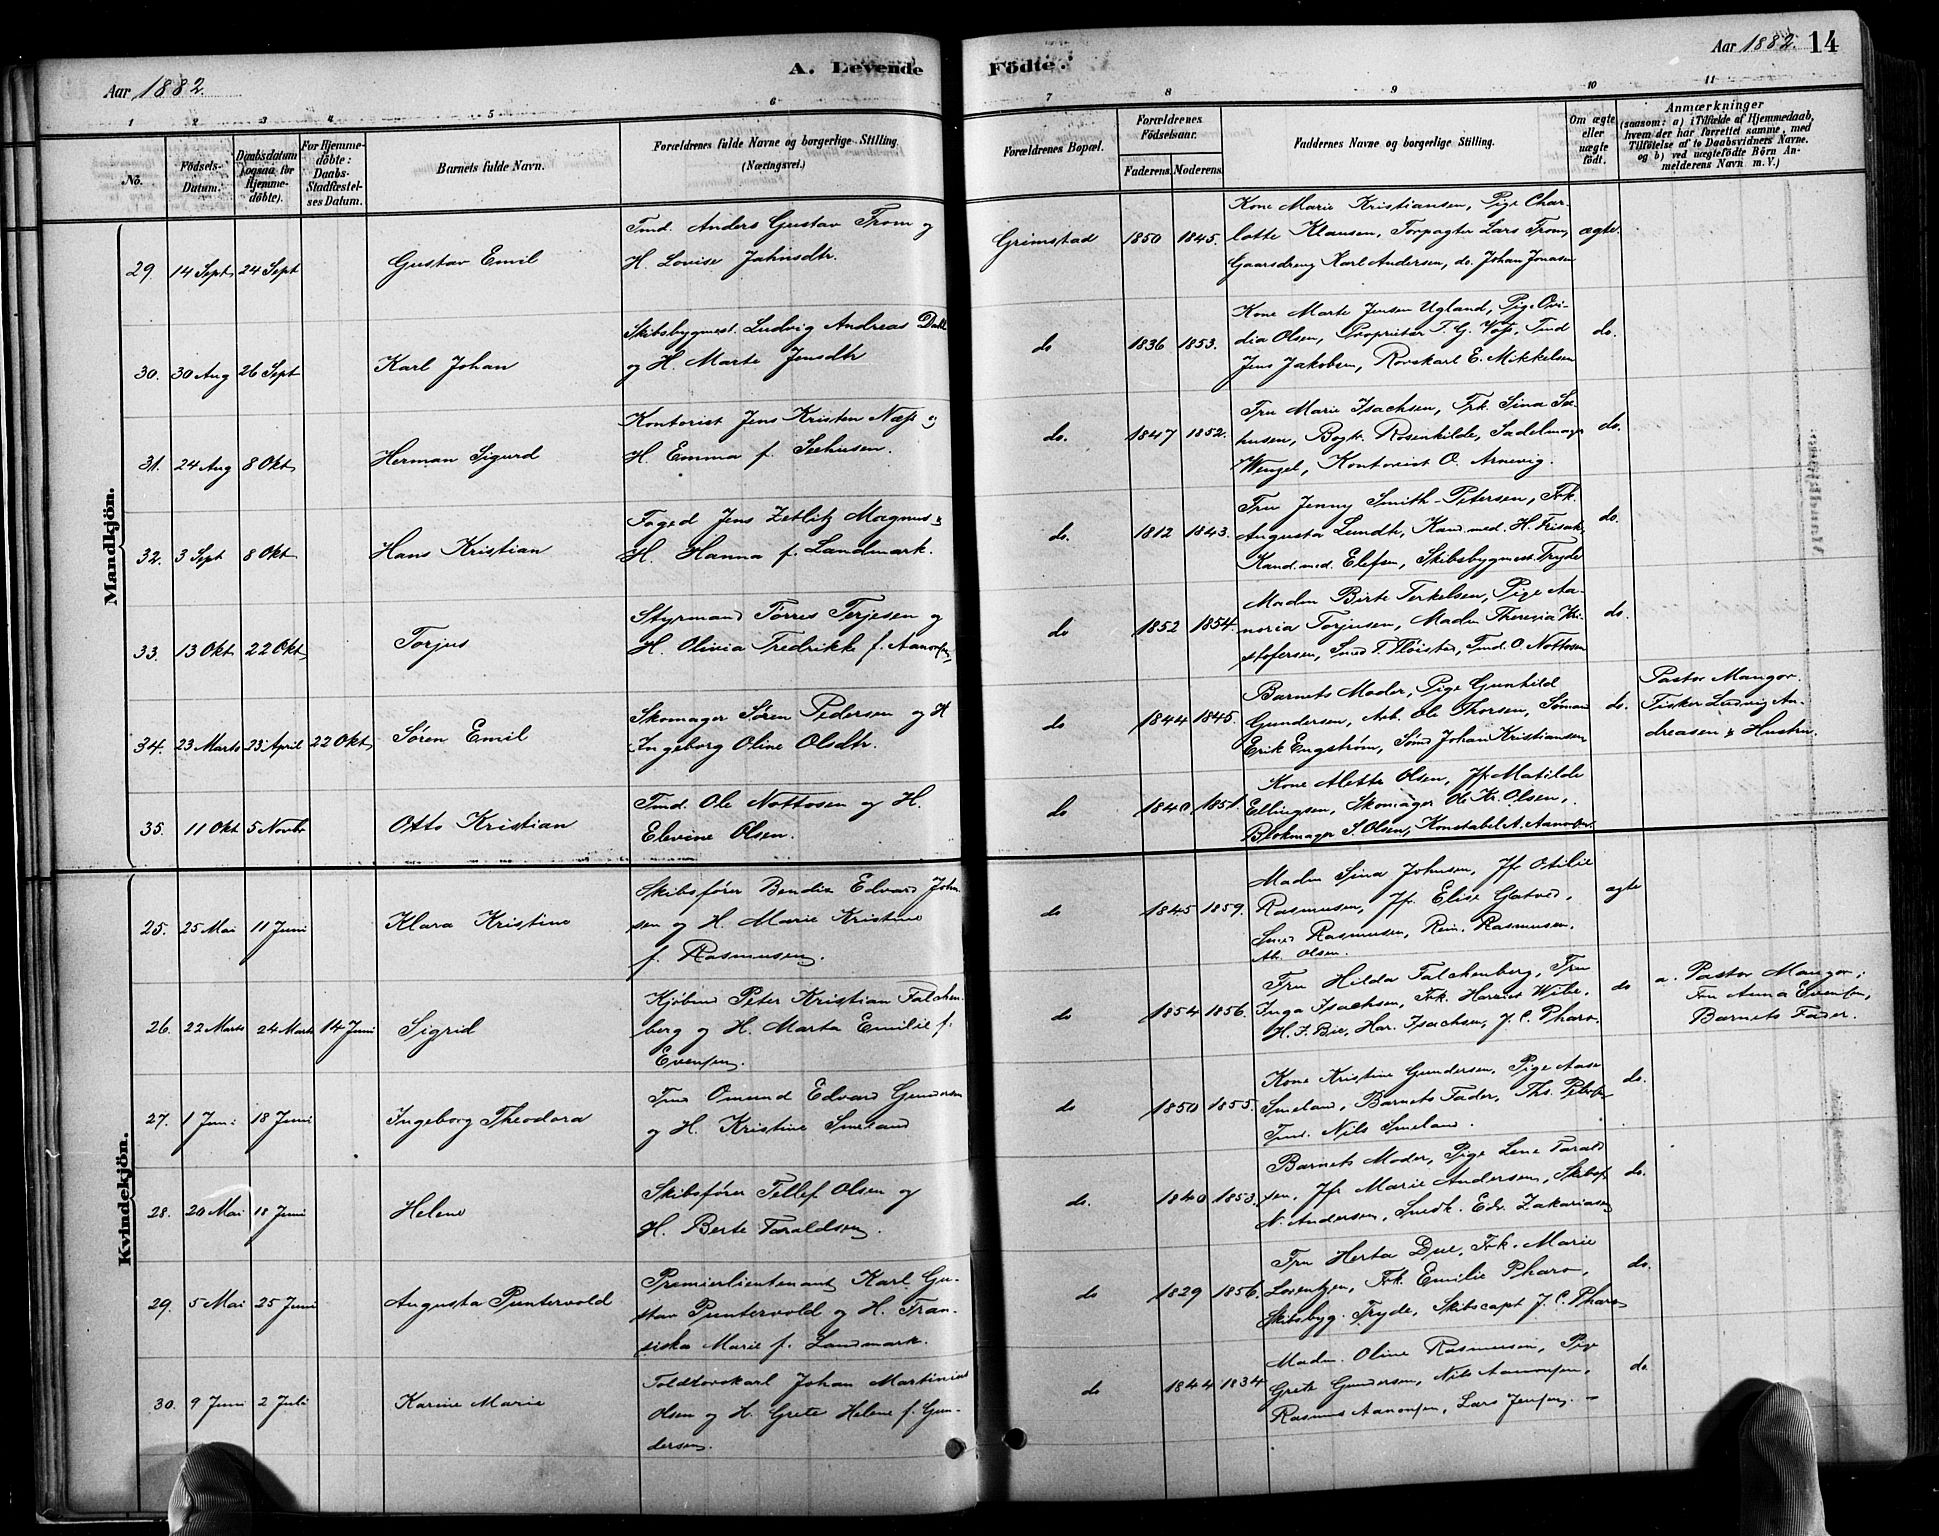 Aar 1882.
A. Levende
Födte.
Aar 1882. 14
1 2 3 4 5 6
7 8 9 10 11
No.
Födsels-Datum.
Daabsdatum (ogsaa for Hjemmedøbte).
For Hjemmedöbte: Daabs-Stadfæstelses Datum.
Barnets fulde Navn.
Forældrenes fulde Navne og borgerlige Stilling (Næringsvei.)
Forældrenes Bopæl.
Forældrenes Födselsaar.
Faderens. Moderens.
Faddernes Navne og borgerlige Stilling.
Om ægte eller uægte födt.
Anmærkninger
(saasom: a) i Tilfælde af Hjemmedaab,
hvem der har forrettet samme, med
Tilföielse af to Daabsvidners Navne.
og b) ved uægtefödte Börn An-
melderens Navn m. V.)
Mandkjön.
29. 14 Sept 24 Sept Gustav Emil
Tmd. Anders Gustav Trom og
H. Lovise Jahnsdtr.
Grimstad 1850 1845.
Kone Marie Kristiansen, Pige Char-
lotte Klausen, Forpagter Lars Trom,
Gaarsdreng Karl Andersen, do. Johan Jonasen
ægte.
30. 30 Aug 26 Sept Karl Johan
Skibsbygmest. Ludvig Andreas Dahl
og H. Marte Jensdtr
do 1836 1853.
Kone Marte Jensen Ugland, Pige Ovi-
dia Olsen, Proprietær T. G. Voss, Tmd
Jens Jakobsen, Rorskarl E. Mikkelsen
do.
31. 24 Aug 8 Okt Herman Sigurd
Kontorist Jens Kristen Næss og
H. Emma f. Seehusen.
do. 1847 1852.
Fru Marie Isachsen, Frk. Sina See-
husen, Bogtr. Rosenkilde, Sadelmager
Wenzel, Kontorist O. Arnevig.
do.
32. 3 Sept 8 Okt Hans Kristian
Foged Jens Zetlitz Magnus &
H. Hanna f. Landmark.
do. 1812 1843.
Fru Jenny Smith-Petersen, Frk.
Augusta Lundh, Kand. med. H. Frisak,
Kand. med. Elefsen, Skibsbygmest. Tryde
do.
33. 13 Okt 22 Okt Torjus
Styrmand Torres Terjesen og
H. Olivia Fredrikke f. Aanonsen,
do 1852 1854.
Madm Birte Terkelsen, Pige Aa-
noria Torjusen, Madm Theresia Kri-
stofersen, Smed T. Fløistad, Tmd. O. Nottosen
do.
34. 23 Marts 23 April 22 Okt Søren Emil
Skomager Søren Pedersen og H
Ingeborg Oline Olsdtr.
do 1844 1845.
Barnets Moder, Pige Gunhild
Gundersen, Arb. Ole Thorsen, Sømand
Erik Engstrøm, Sømd Johan Kristiansen
do.
Pastor Mangor.
Fisker Ludvig An-
dreasen & Hustru.
35. 11 Okt 5 Novbr Otto Kristian
Tmd. Ole Nottosen og H.
Elevine Olsen.
do 1840 1851.
Kone Alette Olsen, Jfr Matilde
Ellingsen, Skomager Ole Kr. Olsen,
Blokmager S. Olsen, Konstabel A. Aanonsen.
Kvindekjön.
25. 25 Mai 11 Juni Klara Kristine
Skibsfører Bendix Edvard John-
sen og H. Marie Kristine
f. Rasmussen.
do 1845 1859.
Madm Sina Johnsen, Jfr Otilie
Rasmusen, Jfr. Elise Gatved,
Smed Rasmusen, Rein. Rasmusen,
Ab. Olsen.
ægte
26. 22 Marts 24 Marts 14 Juni Sigrid
Kjøbmd Peter Kristian Falchen-
berg og H. Marta Emilie f.
Evensen.
do 1854 1856.
Fru Hilda Falchenberg, Fru
Inga Isachsen, Frk. Harriet Wibe,
H. F. Bie, Har. Isachsen, J. C. Pharo.
do
a. Pastor Mangor;
Fru Anna Evensen,
Barnets Fader.
27. 1 Juni 18 Juni Ingeborg Theodora
Tmd Omund Edvard Gundersen
og H. Kristine Smeland
do 1850 1855.
Kone Kristine Gundersen, Pige Aase
Smeland, Barnets Fader, Ths. Petersen
Tmd. Nils Smeland.
do.
28. 20 Mai 18 Juni Helene
Skibsfører Tellef Olsen og
H. Berte Taraldsen.
do. 1840 1853.
Barnets Moder, Pige Lene Tarald
sen, Jfr Marie Andersen, Skibsf
N. Andersen, Smedk. Edv. Zakariasen
do.
29. 5 Mai 25 Juni Augusta Puntervold
Premierlieutenant Karl Gu-
stav Puntervold og H. Fran-
siska Marie f. Landmark.
do 1829 1856.
Fru Herta Due, Frk. Marie
Lorentzen, Frk. Emilie Pharo,
Skibsbyg. Tryde, Skibscapt J. C. Pharo
do.
30. 9 Juni 2 Juli Karine Marie
Toldtorskarl Johan Martinius
Olsen og H. Grete Helene f. Gun-
dersen.
do 1844 1834
Madm. Oline Rasmusen, Pige
Grete Gundersen, Nils Aanonsen,
Rasmus Aanonsen, Lars Jensen. –
do